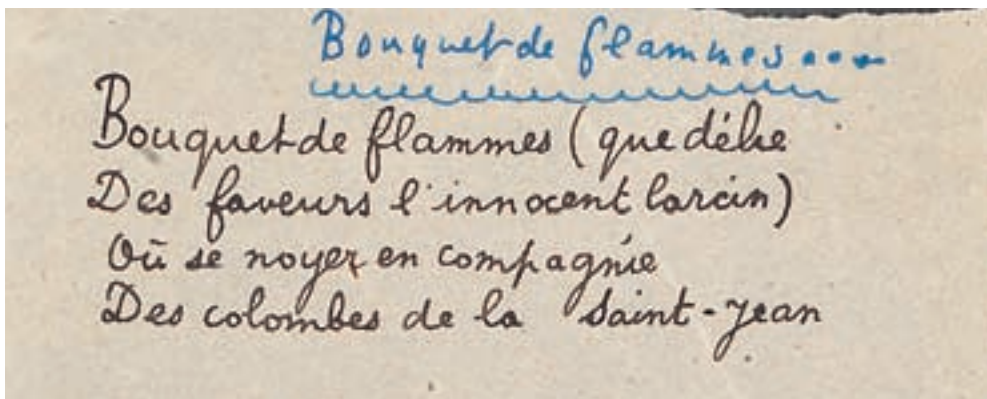 Bouquet de flammes...
Bouquet de flammes (que délie
Des faveurs l'innocent larcin)
Où se noyer en compagnie
Des colombes de la Saint-Jean